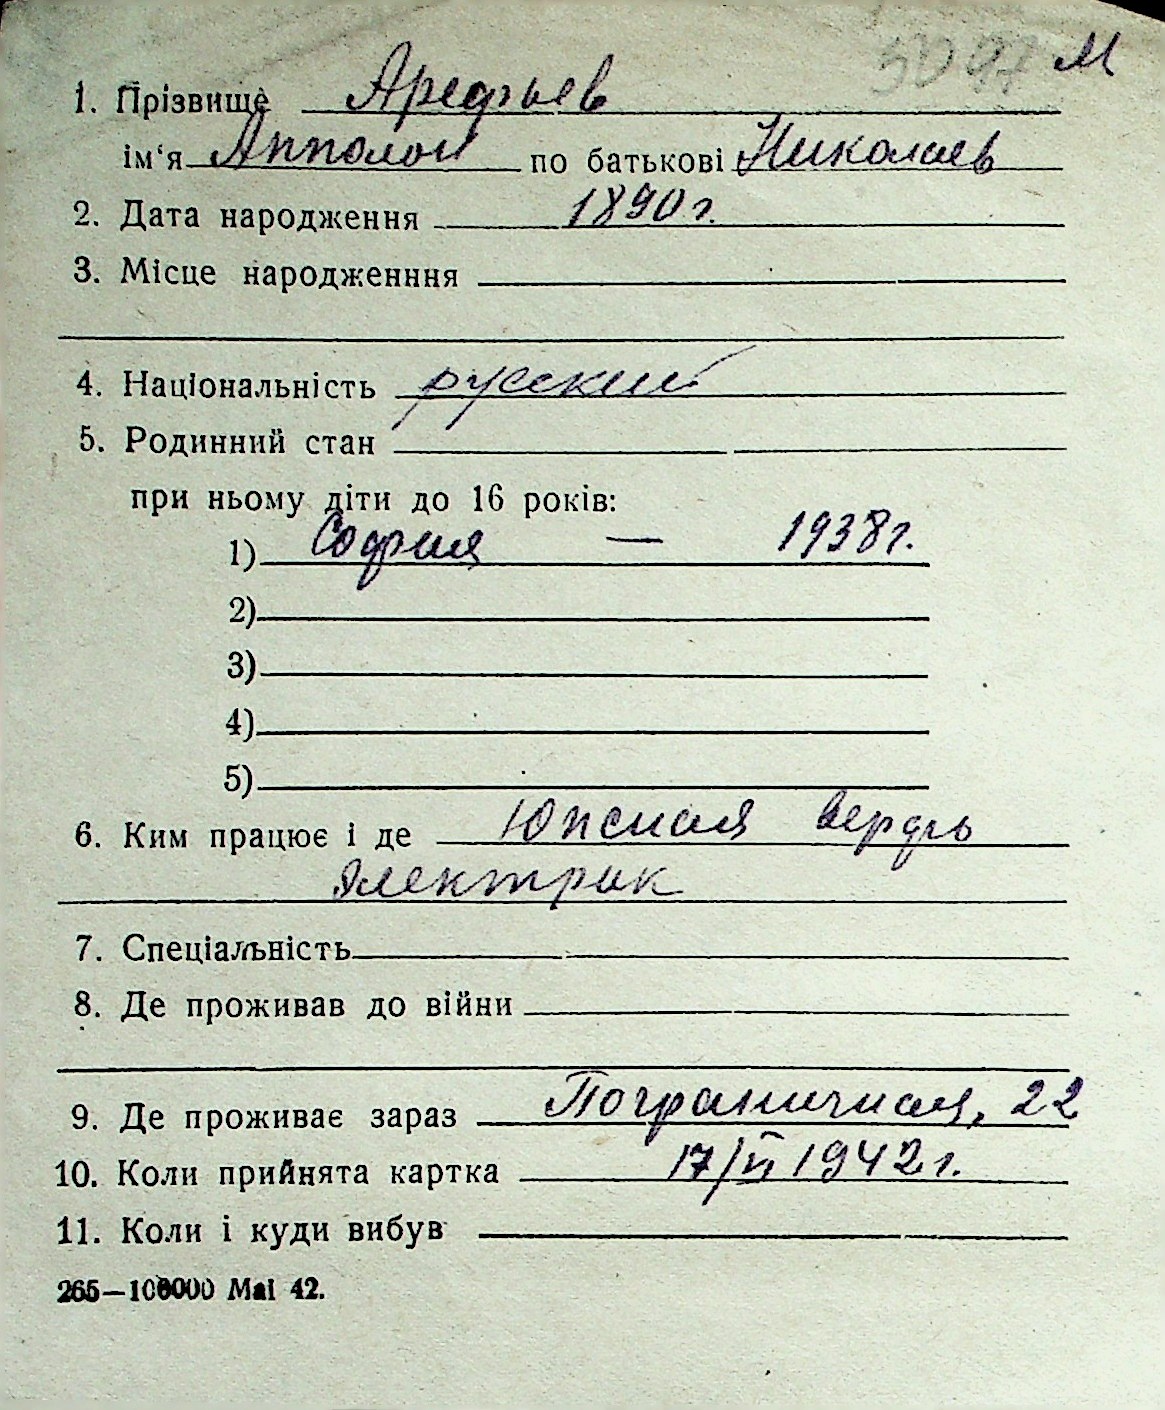 3097 М
1. Прізвище Арефьев
ім'я Апполон по батькові Николаев
2. Дата народження 1890 г.
3. Місце народженння
4. Національність русский
5. Родинний стан
при ньому діти до 16 років:
1) София — 1938 г.
2)
3)
4)
5)
6. Ким працює і де Южная верфь
Электрик
7. Спеціальність
8. Де проживав до війни
9. Де проживає зараз Пограничная, 22
10. Коли прийнята картка 17/VI 1942 г.
11. Коли і куди вибув
265—100000 Маі 42.